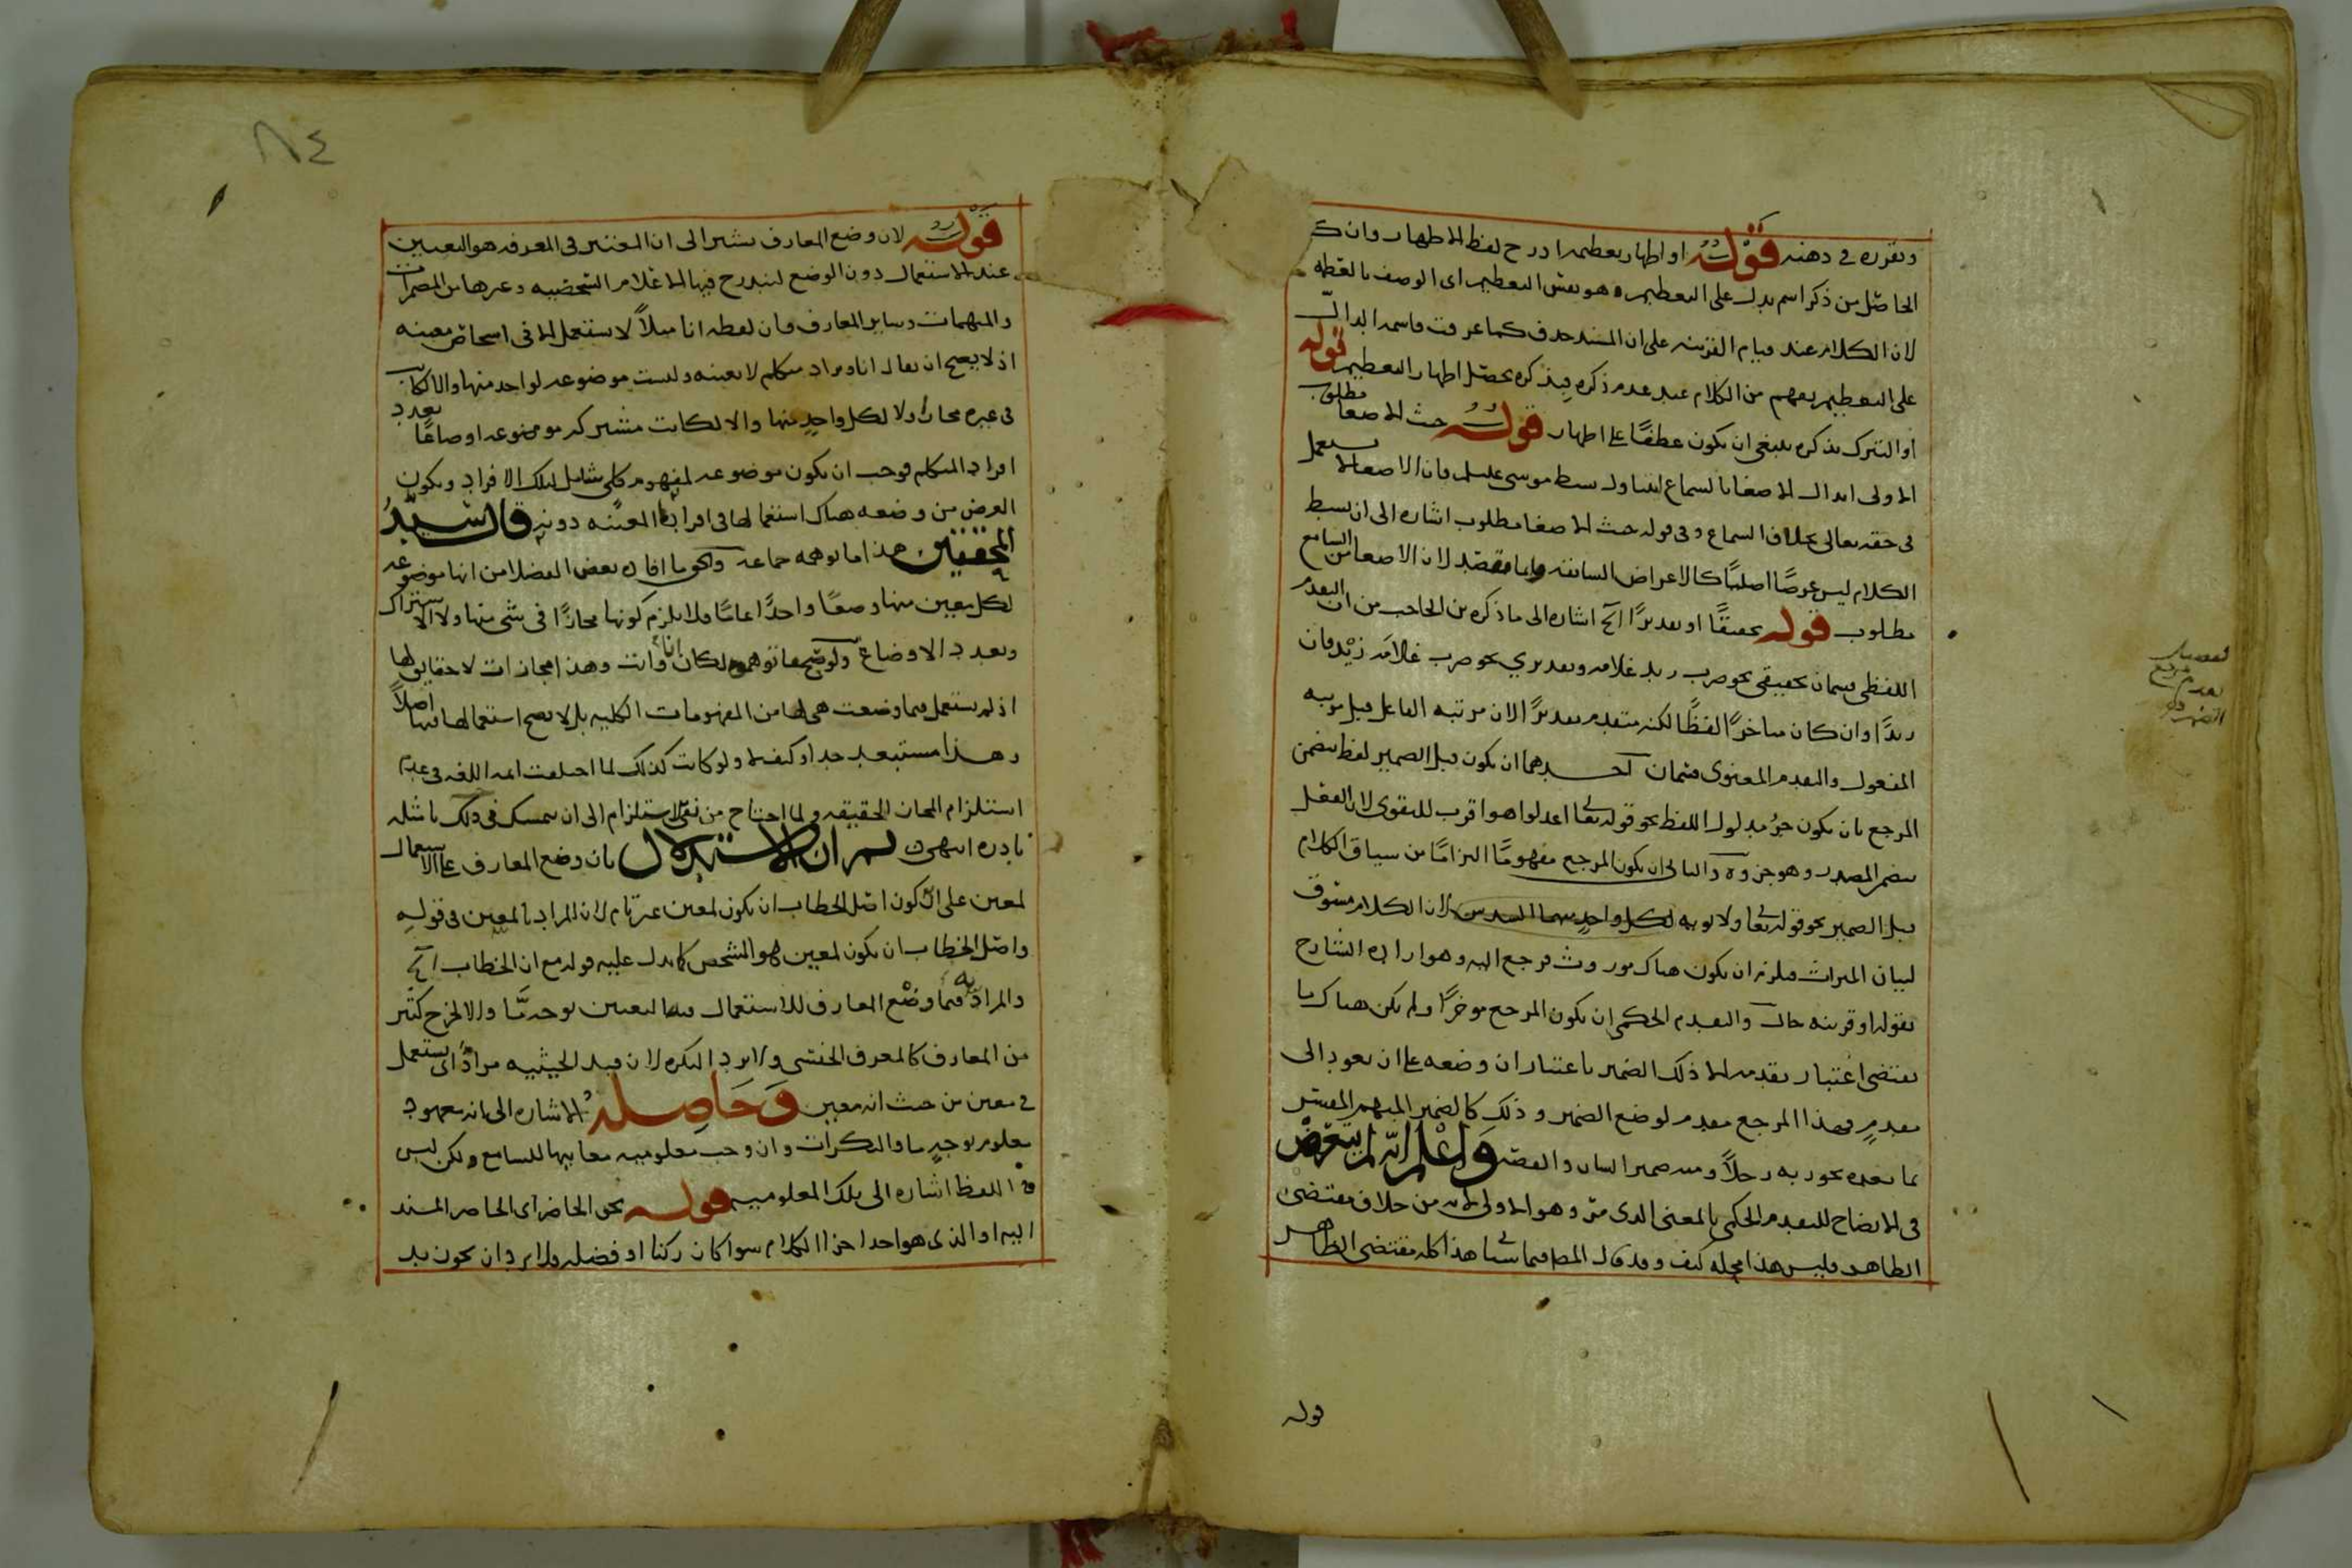 وتقرره في ذهنه قوله او اظهار تعظيمه ادرج لفظ الاظهار وان كـ
الحاصل من ذكر اسم يدل على التعظيم هو نفس التعظيم اى الوصف بالعظمة
لان الكلام عند قيام القرينة على ان المسند حذف كما عرفت فاسمه الدال
على التعظيم يفهم من الكلام عند عدم ذكره فبذكره يحصل اظهار التعظيم قوله
او التبرك بذكره ينبغي ان يكون عطفًا على اظهار قوله حيث الاصغا مطلوب
الاولى ابدال الاصغا بالسماع ليتناول بسط موسى عليه السلم فان الاصغا لا يستعمل
في حقه تعالى بخلاف السماع وفي قوله حيث الاصغا مطلوب اشارة الى ان بسط
الكلام ليس غرضًا اصليًا كالاغراض السابقة وانما قصد لان الاصغا من السامع
مطلوب قوله تحقيقًا او تقديرًا آلخ اشارة الى ما ذكره بن الحاجب من ان التقدم
اللفظى قسمان تحقيقى نحو ضرب زيد غلامه وتقديري نحو ضرب غلامَه زيْد فان
زيدًا وان كان متاخرًا لفظًا لكنه متقدم تقديرًا لان مرتبة الفاعل قبل مرتبة
المفعول والتقدم المعنوى قسمان آحــدهما ان يكون قبل الضمير لفظ يتضمن
المرجع بان يكون جزُ مدلول اللفظ نحو قوله تعالى اعدلوا هو اقرب للتقوى لان الفعل
يتضمن المصدر وهو جزوه والثانى ان يكون المرجع مفهومًا التزامًا من سياق الكلام
قبل الضمير نحو قوله تعالى ولابويه لكل واحدٍ منهما السدس لان الكلام مسوق
لبيان الميراث فلزم ان يكون هناك موروث فرجع اليه وهو اراده الشارح
بقوله او قرينة حال والتقدم الحكمى ان يكون المرجع موخرًا ولم يكن هناك ما
يقتضى اعتبار تقدمه الا ذلك الضمير باعتبار ان وضعه على ان يعود الى
مقدمٍ فهذا المرجع مقدم لوضع الضمير وذلك كالضمير المبهم المفسَّر
بما بعده نحو ربه رجلاً ومنه ضمير الشان والقصة وَاعْلم انه لم يتعرض
في الايضاح للتقدم الحكمى بالمعنى الذى مرّ وهو الاولى لانه من خلاف مقتضى
الظاهر فليس هذا محله كيف وقد قال المص فيما سياتى هذا كله مقتضى الظاهر
قوله
تقدم مرجع
٨٤
قوله لان وضع المعارف يشير الى ان المعتبر في المعرفة هو التعيين
عند الاستعمال دون الوضع ليندرج فيها الاعلام الشخصية وغيرها من المضمرات
والمبهمات وساير المعارف فان لفظة انا مثلاً لا يستعمل الا في اشخاص معينة
اذ لا يصح ان يقال انا ويراد متكلم لا بعينه وليست موضوعة لواحد منها والا لكانت
في غيره مجازًا ولا لكل واحدٍ منها والا لكانت مشتركه موضوعة اوضاعًا بعدد
افراد المتكلم فوجب ان يكون موضوعة لمفهوم كلى شامل لتلك الافراد ويكون
الغرض من وضعه هناك استعمالها في افراده المعينة دونه قال سَيّدُ
المحققين هذا ما توهمه جماعة والحق ما افاده بعض الفضلا من انها موضوعة
لكل معين منها وضعًا واحدًا عامًا فلا يلزم كونها مجازًا في شى منها ولا الاشتراك
وتعدد الاوضاع ولو صح ما توهموه لكان انا وانت وهذا مجازات لا حقايق لها
اذ لم تستعمل فيما وضعت هى لها من المفهومات الكلية بل لا يصح استعمالها فيها اصلاً
وهــذا مستبعد جدا وكيف لا ولو كانت كذلك لما اختلفت ايمة اللغة في عدم
استلزام المجاز الحقيقة ولما احتاج من نفى الاستلزام الى ان يتمسك في ذلك بامثلة
نادره انتهى ثــم ان الاستدلال بان وضع المعارف على الاستعمال
لمعين على ان كون اصل الخطاب ان يكون لمعين غير تام لان المراد بالمعين في قوله
واصل الخطاب ان يكون لمعين هو المشخص كما يدل عليه قوله مع ان الخطاب آلخ
والمراد به فيما وضْع المعارف للاستعمال فيه التعين بوجه مَّا والا لخرج كثير
من المعارف كالمعرف الجنسى ولا يرد النكره لان قيد الحيثية مراد اى يستعمل
في معين من حيث انه معين وَحَاصِله الاشارة الى انه معهود
معلوم بوجهٍ ما والنكرات وان وجب معلومية معانيها للسامع ولكن ليس
في اللفظ اشارة الى تلك المعلومية قولــه نحو الحاضر اى الحاضر المسند
اليه او الذى هو احد اجزا الكلام سوا كان ركنا او فضلة فلا يرد ان نحو زيد